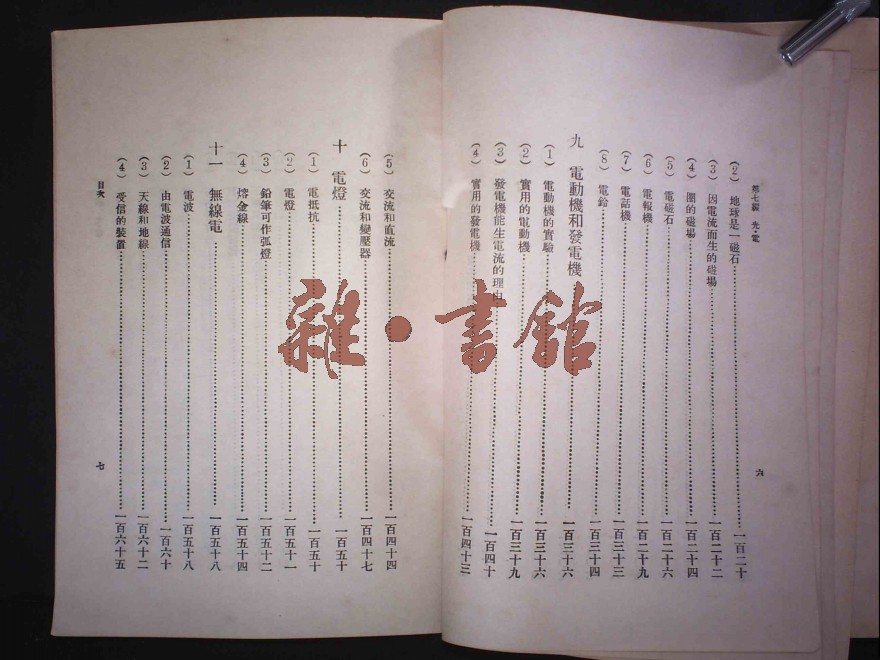 第七編 光·電
(2) 地球是一磁石 一百二十
(3) 因電流而生的磁場 一百二十二
(4) 圈的磁場 一百二十四
(5) 電磁石 一百二十六
(6) 電報機 一百二十九
(7) 電話機 一百三十三
(8) 電鈴 一百三十四
九 電動機和發電機 一百三十六
(1) 電動機的實驗 一百三十六
(2) 實用的電動機 一百三十九
(3) 發電機能生電流的理由 一百四十
(4) 實用的發電機 一百四十三
六
(5) 交流和直流 一百四十四
(6) 交流和變壓器 一百四十七
十 電燈 一百五十
(1) 電抵抗 一百五十
(2) 電燈 一百五十一
(3) 鉛筆可作弧燈 一百五十二
(4) 熔金線 一百五十四
十一 無線電 一百五十八
(1) 電波 一百五十八
(2) 由電波通信 一百六十
(3) 天線和地線 一百六十二
(4) 受信的裝置 一百六十五
目次
七
雜·書館